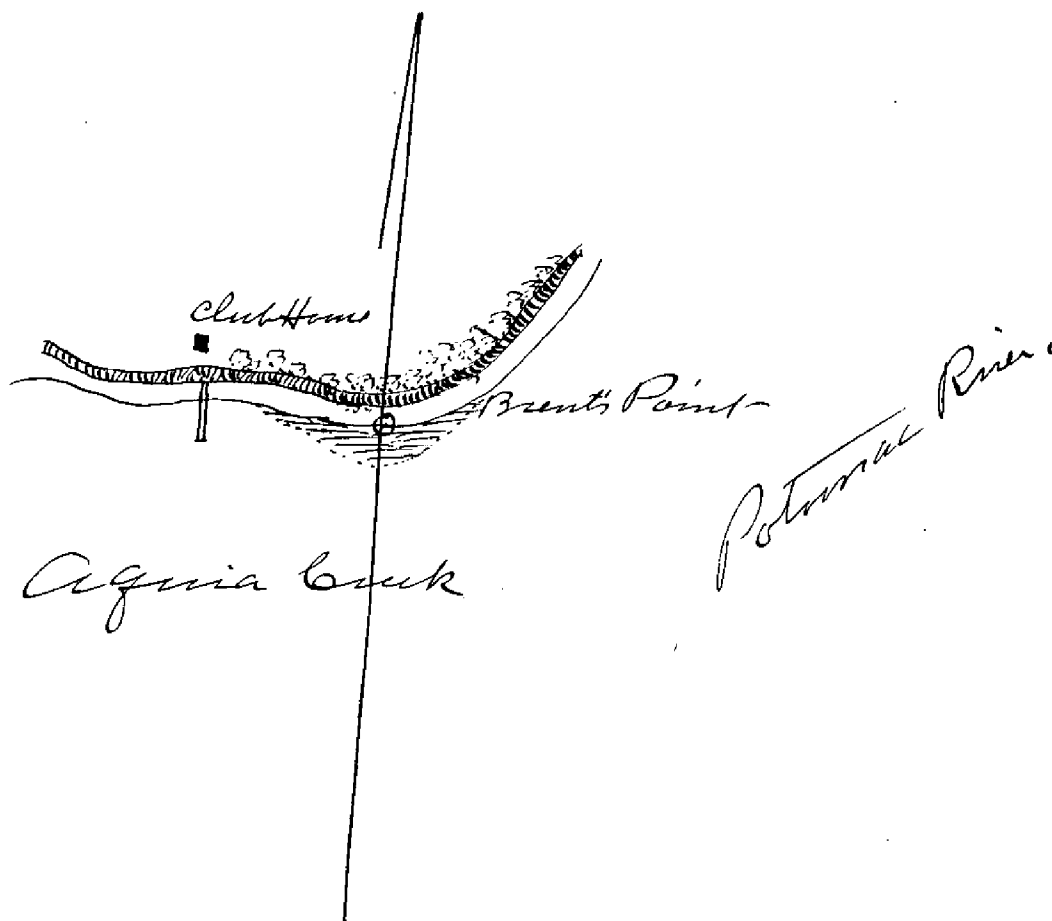 Club House
Brent's Point
Potomac River
Aquia Creek